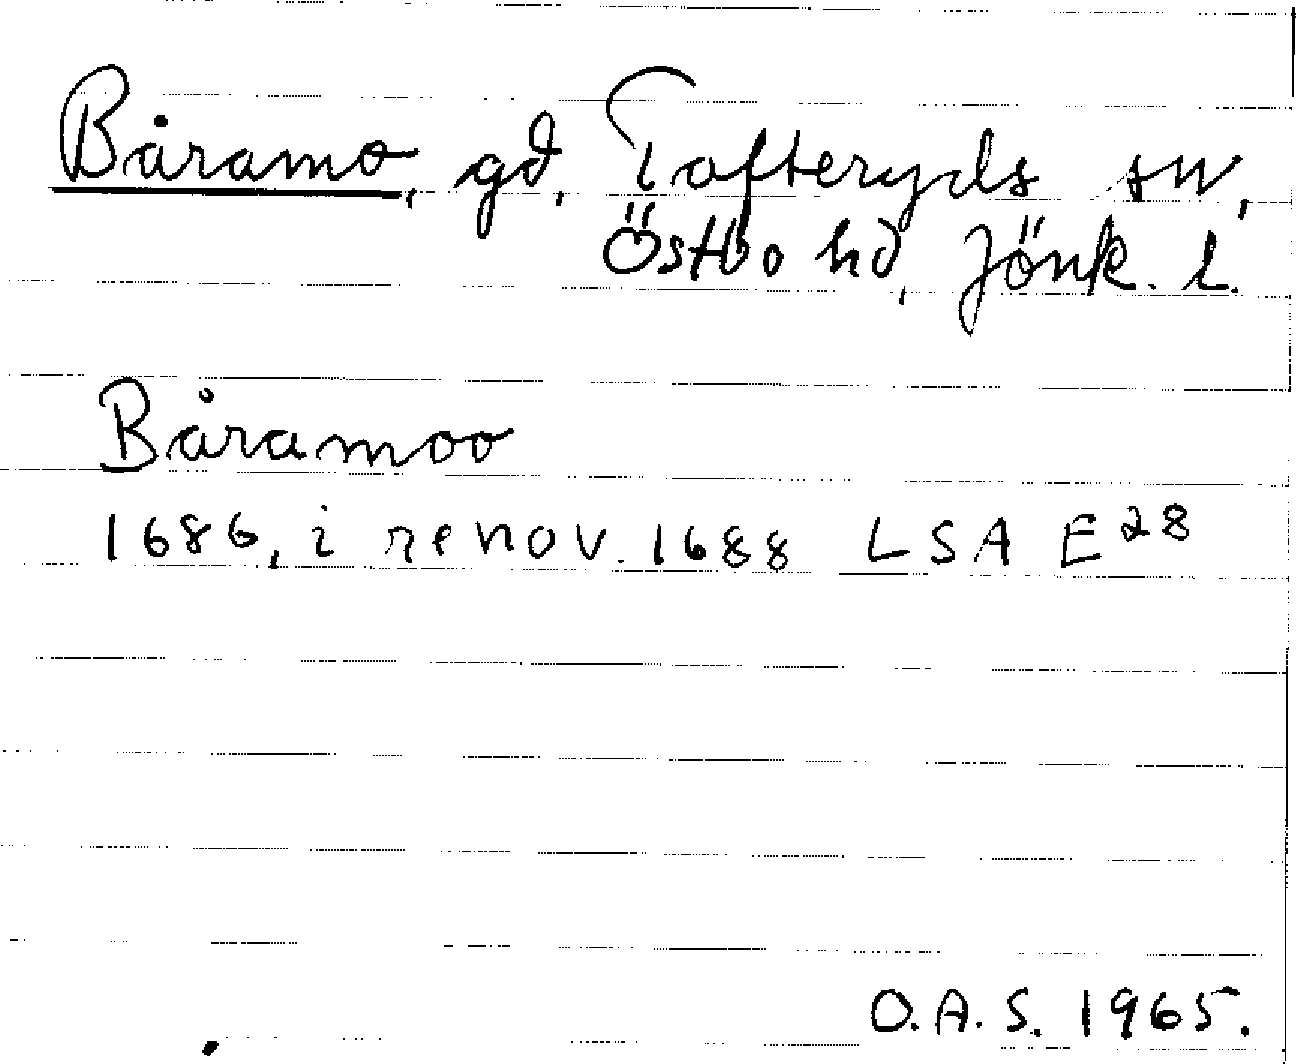 Båramo, gd, Tofteryds sn,
Östbo hd, Jönk. l.
Båramoo
1686, i renov. 1688 LSA E28
O.A.S. 1965.